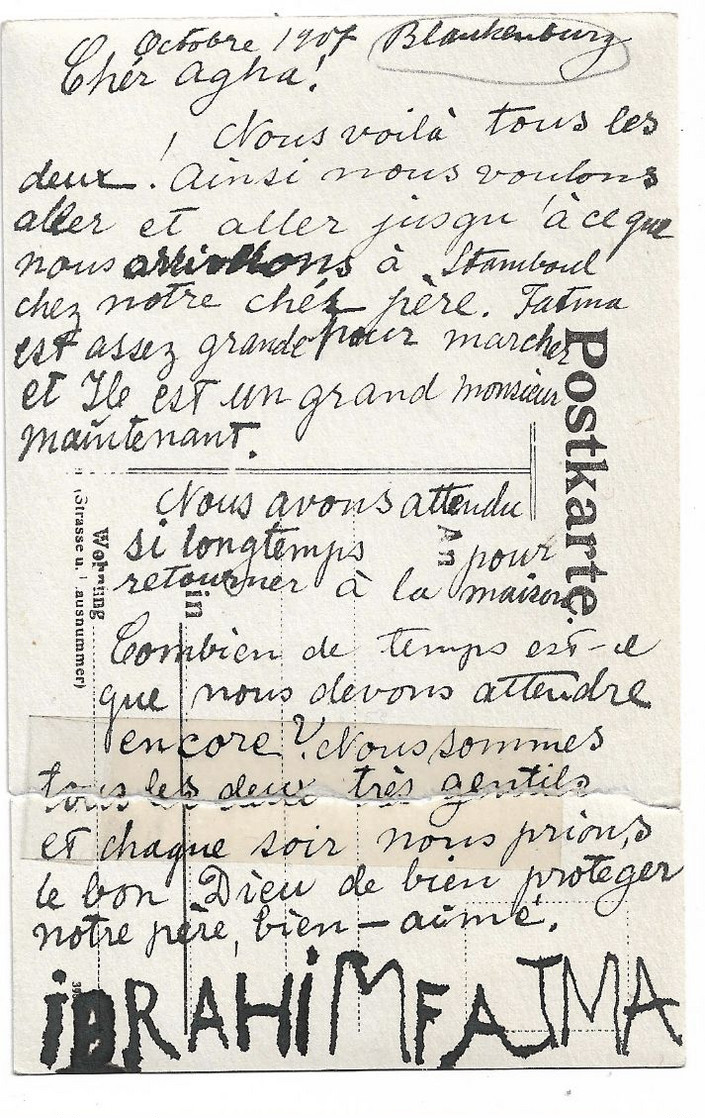 Octobre 1907 Blankenburg
Chér Agha!
Nous voilà tous les
deux! Ainsi nous voulons
aller et aller jusqu'à ce que
nous arrivons à Stamboul
chez notre chér père. Fatma
est assez grande pour marcher
et Ile est un grand monsieur
maintenant.
Nous avons attendu
si longtemps pour
retourner à la maison
Combien de temps est-ce
que nous devons attendre
encore? Nous sommes
tous les deux très gentils
et chaque soir nous prions
le bon Dieu de bien proteger
notre père, bien-aimé.
iBRAHiM FATMA
Postkarte.
An
in
Wohnung
(Strasse u. Hausnummer)